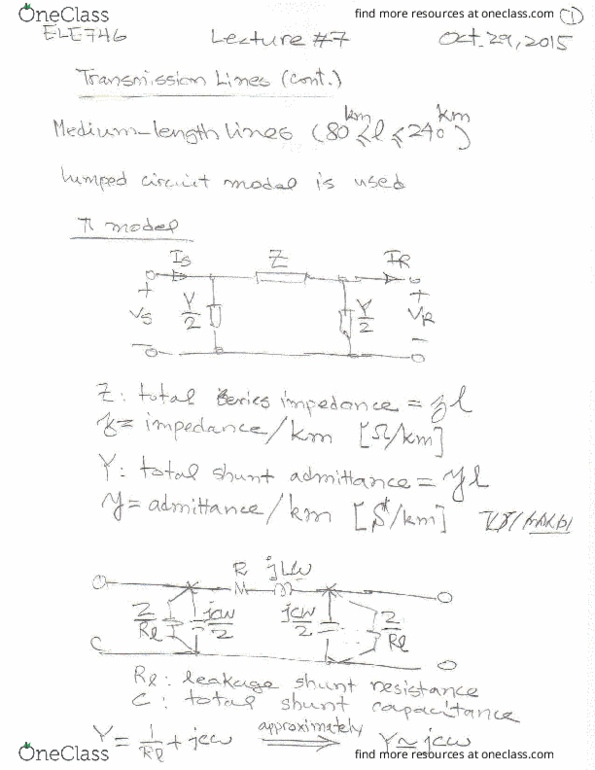 OneClass find more resources at oneclass.com 1
ELE746 Lecture #7 Oct. 29, 2015
Transmission Lines (cont.)
Medium-length lines (80 km ≤ l ≤ 240 km)
lumped circuit model is used
π model
Is Z IR
+ Y/2 Y/2 +
Vs VR
- -
Z: total series impedance = zl
z = impedance/km [Ω/km]
Y: total shunt admittance = yl
y = admittance/km [S/km]
R jLω
2/Rl jcω/2 jcω/2 2/Rl
Rl: leakage shunt resistance
C: total shunt capacitance
Y = 1/Rl + jcω approximately ⟹ Y ≃ jcω
OneClass find more resources at oneclass.com